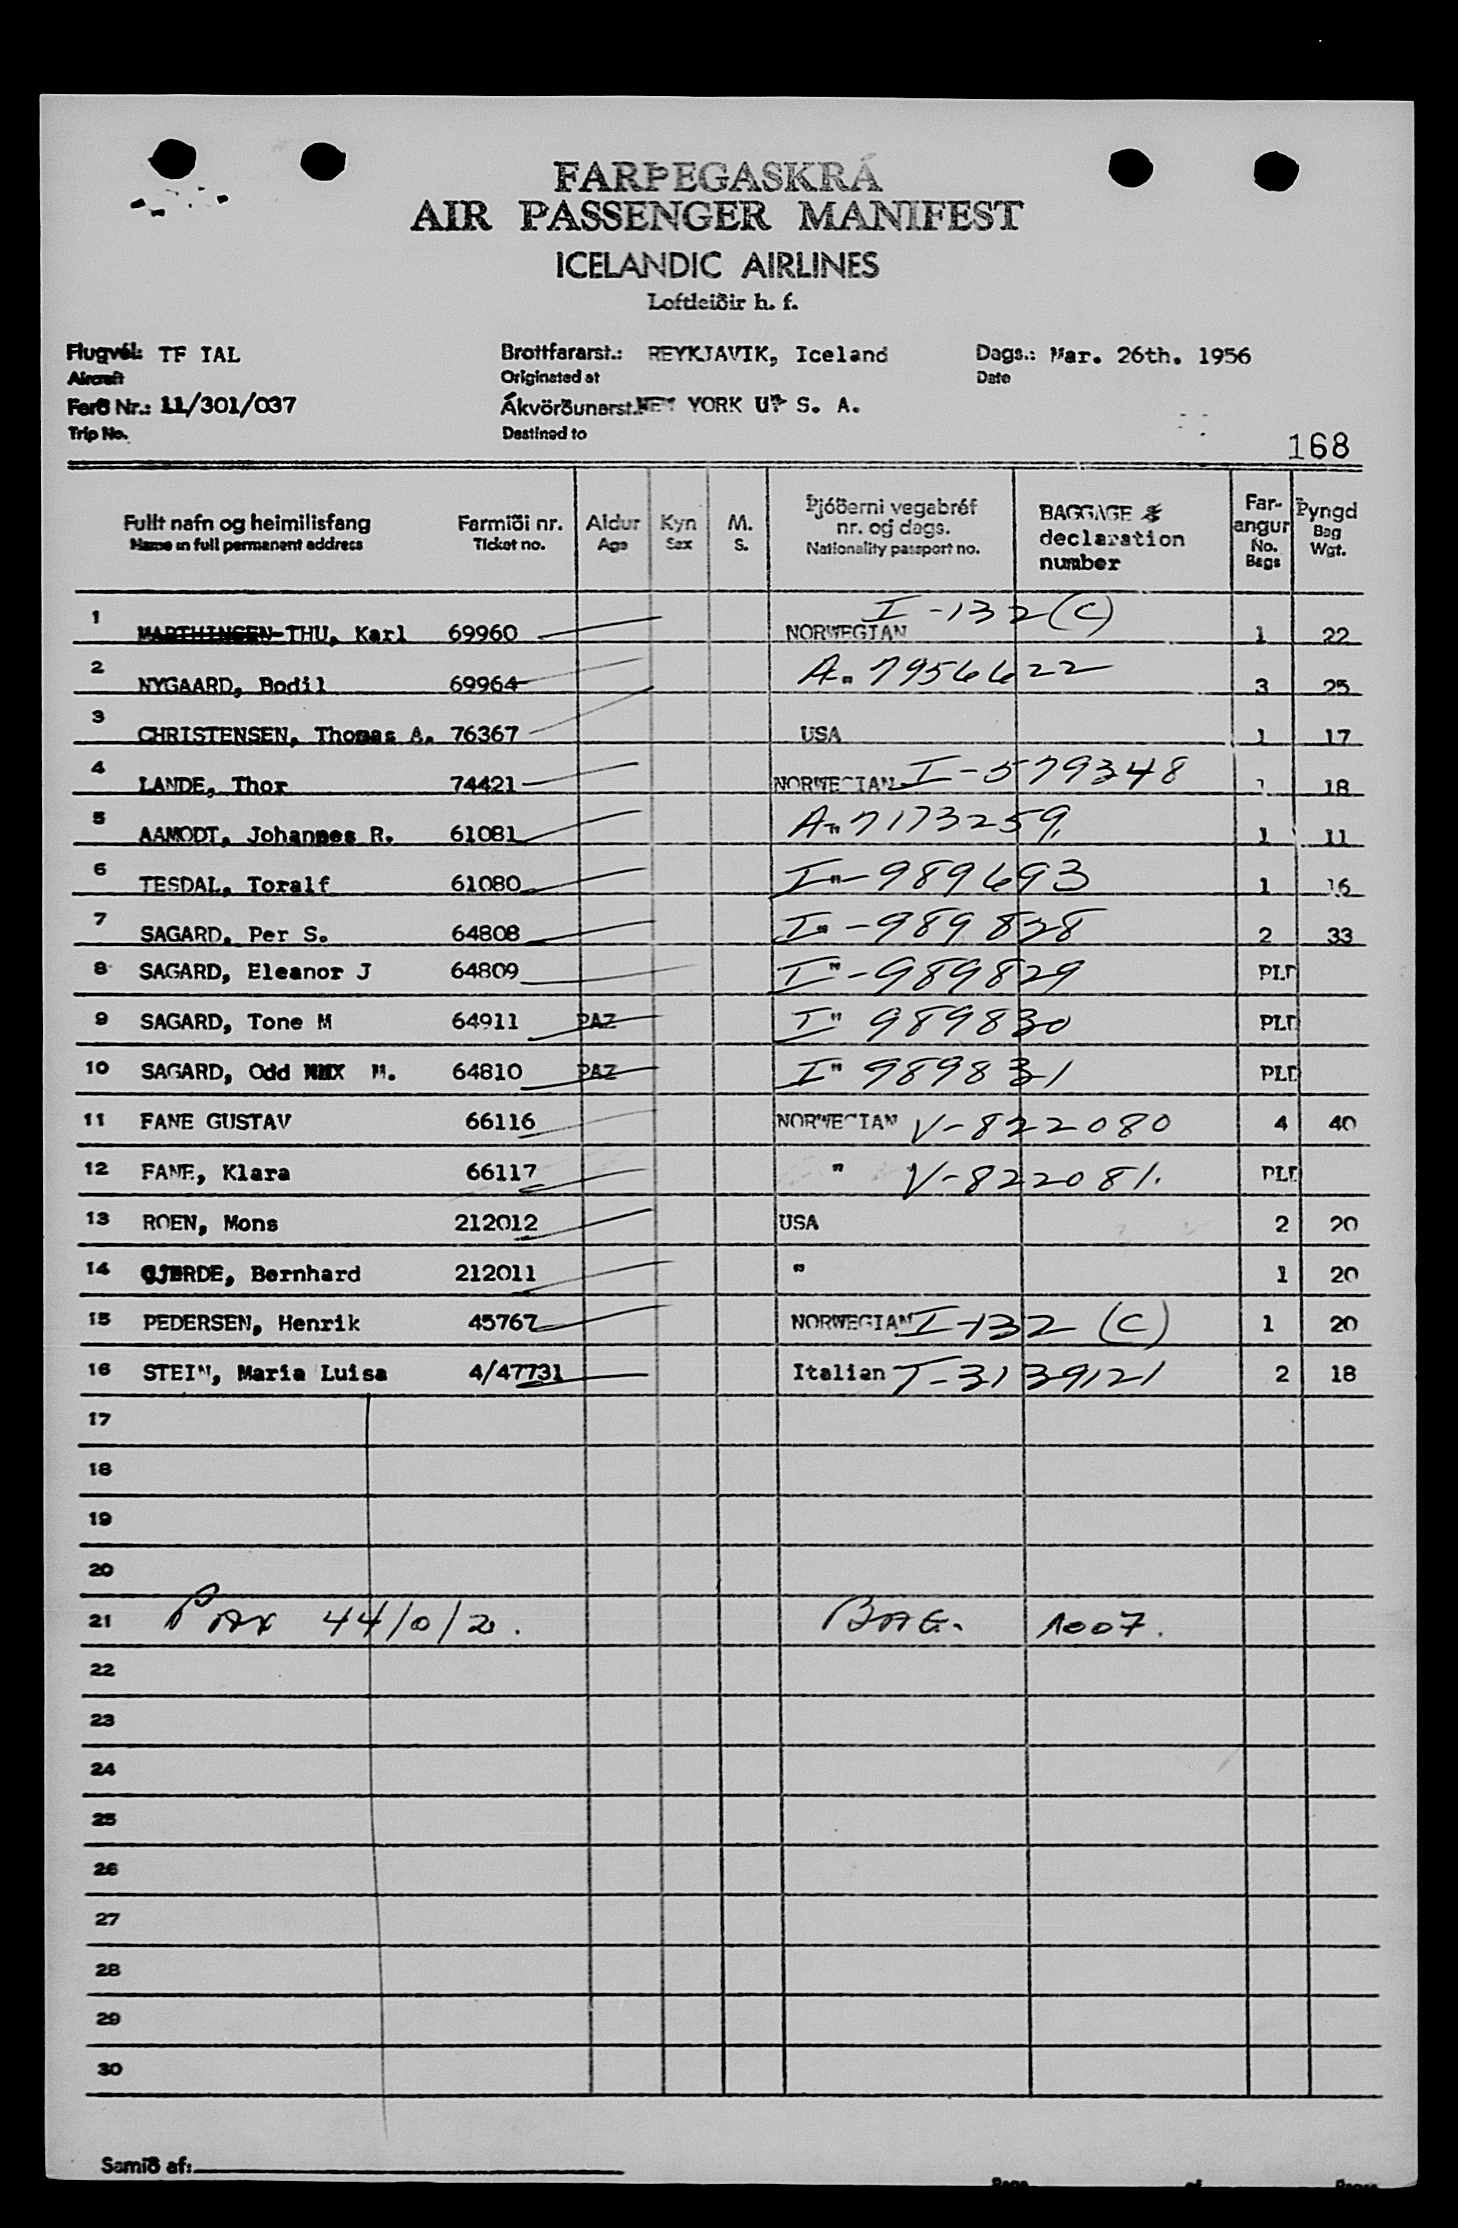 FARÞEGASKRÁ
AIR PASSENGER MANIFEST
ICELANDIC AIRLINES
Loftleiðir h. f.
Flugvél: TF IAL Brottfararst.: REYKJAVIK, Iceland Dags.: Mar. 26th. 1956
Aircraft Originated at Date
Ferð Nr.: 11/301/037 Ákvörðunarst.: NEW YORK U S. A.
Trip No. Destined to
168
Fullt nafn og heimilisfang Farmiði nr. Aldur Kyn M. Þjóðerni vegabréf nr. og dags. BAGGAGE declaration number Farangur Þyngd
Name in full permanent address Ticket no. Age Sex S. Nationality passport no. No. Bags Bag Wgt.
1 MARTHINSEN-THU, Karl 69960 NORWEGIAN I-132(C) 1 22
2 NYGAARD, Bodil 69964 A " 7956622 3 25
3 CHRISTENSEN, Thomas A. 76367 USA 1 17
4 LANDE, Thor 74421 NORWEGIAN I-579348 1 18
5 AAMODT, Johannes R. 61081 A " 7173259 1 11
6 TESDAL, Toralf 61080 I " -989693 1 16
7 SAGARD, Per S. 64808 I " -989828 2 33
8 SAGARD, Eleanor J 64809 I " -989829 PLD
9 SAGARD, Tone M 64911 PAZ I " 989830 PLD
10 SAGARD, Odd M. 64810 PAZ I " 989831 PLD
11 FANE GUSTAV 66116 NORWEGIAN V-822080 4 40
12 FANE, Klara 66117 " V-822081. PLD
13 ROEN, Mons 212012 USA 2 20
14 GJERDE, Bernhard 212011 " 1 20
15 PEDERSEN, Henrik 45767 NORWEGIAN I-132 (C) 1 20
16 STEIN, Maria Luisa 4/47731 Italian T-3139121 2 18
17
18
19
20
21 Pax 44/0/2. BAG. 1007.
22
23
24
25
26
27
28
29
30
Samið af: